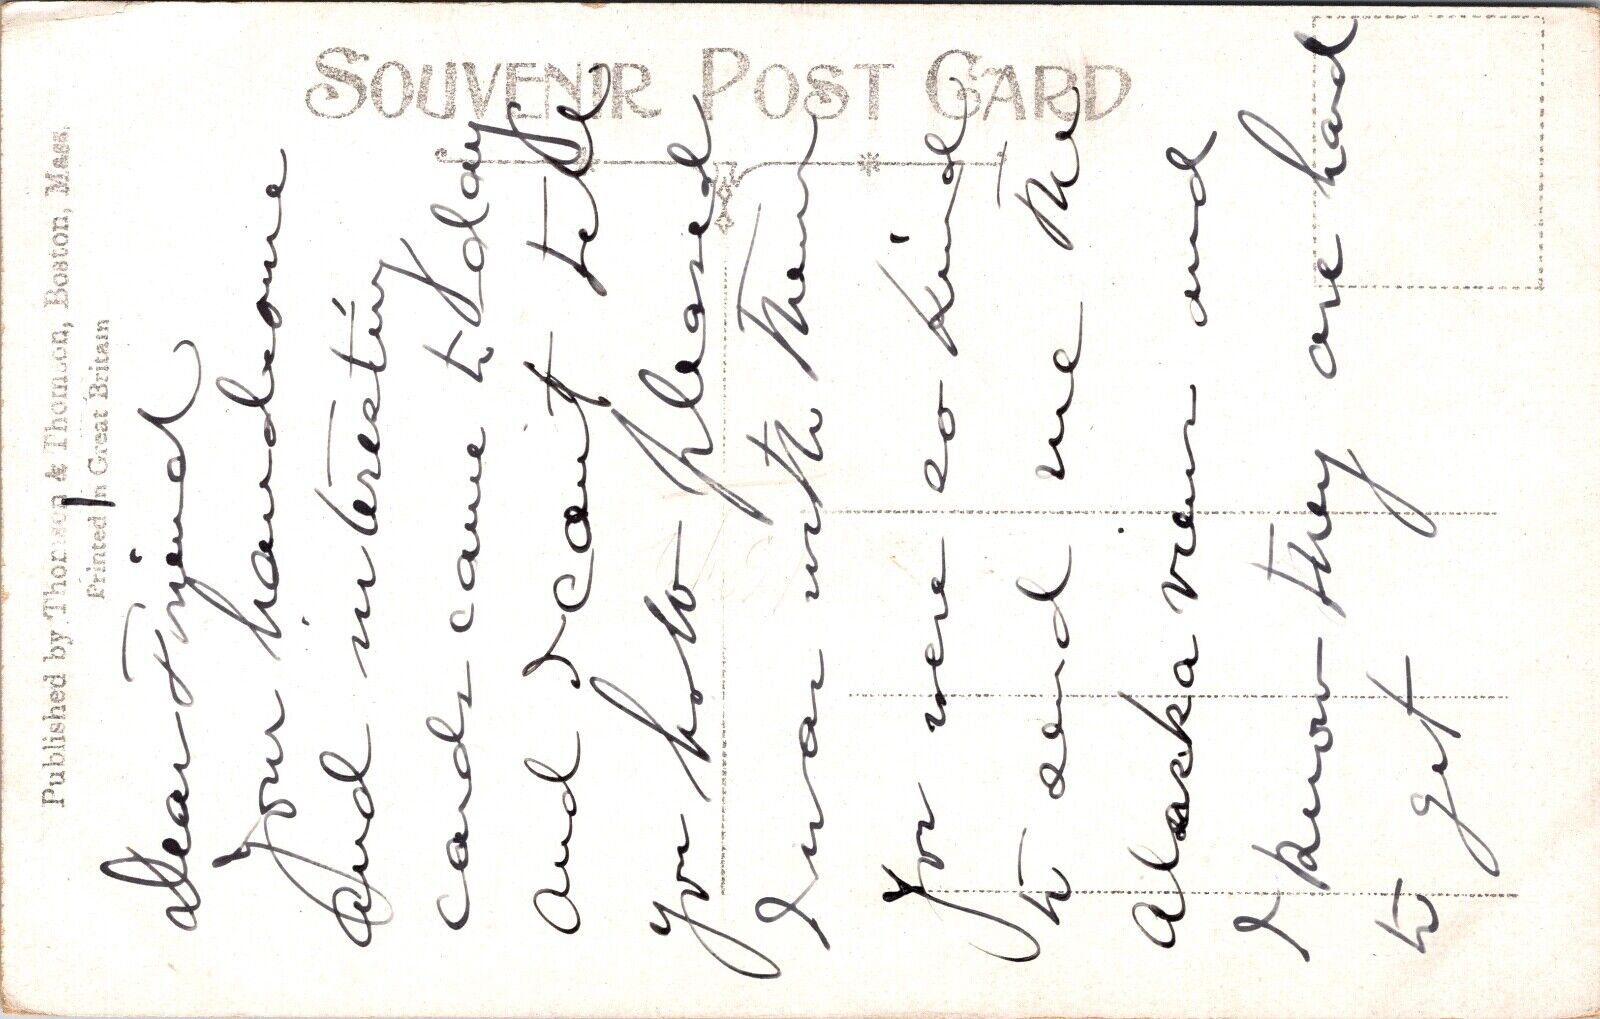 SOUVENIR POST CARD
Published by Thomson & Thomson, Boston, Mass.
Printed in Great Britain
Dear Friend
Your handsome
and interesting
cards came to day
and I cant tell
you how pleased
I was with them
You were so kind
to send me the
Alaska views and
I know they are hard
to get